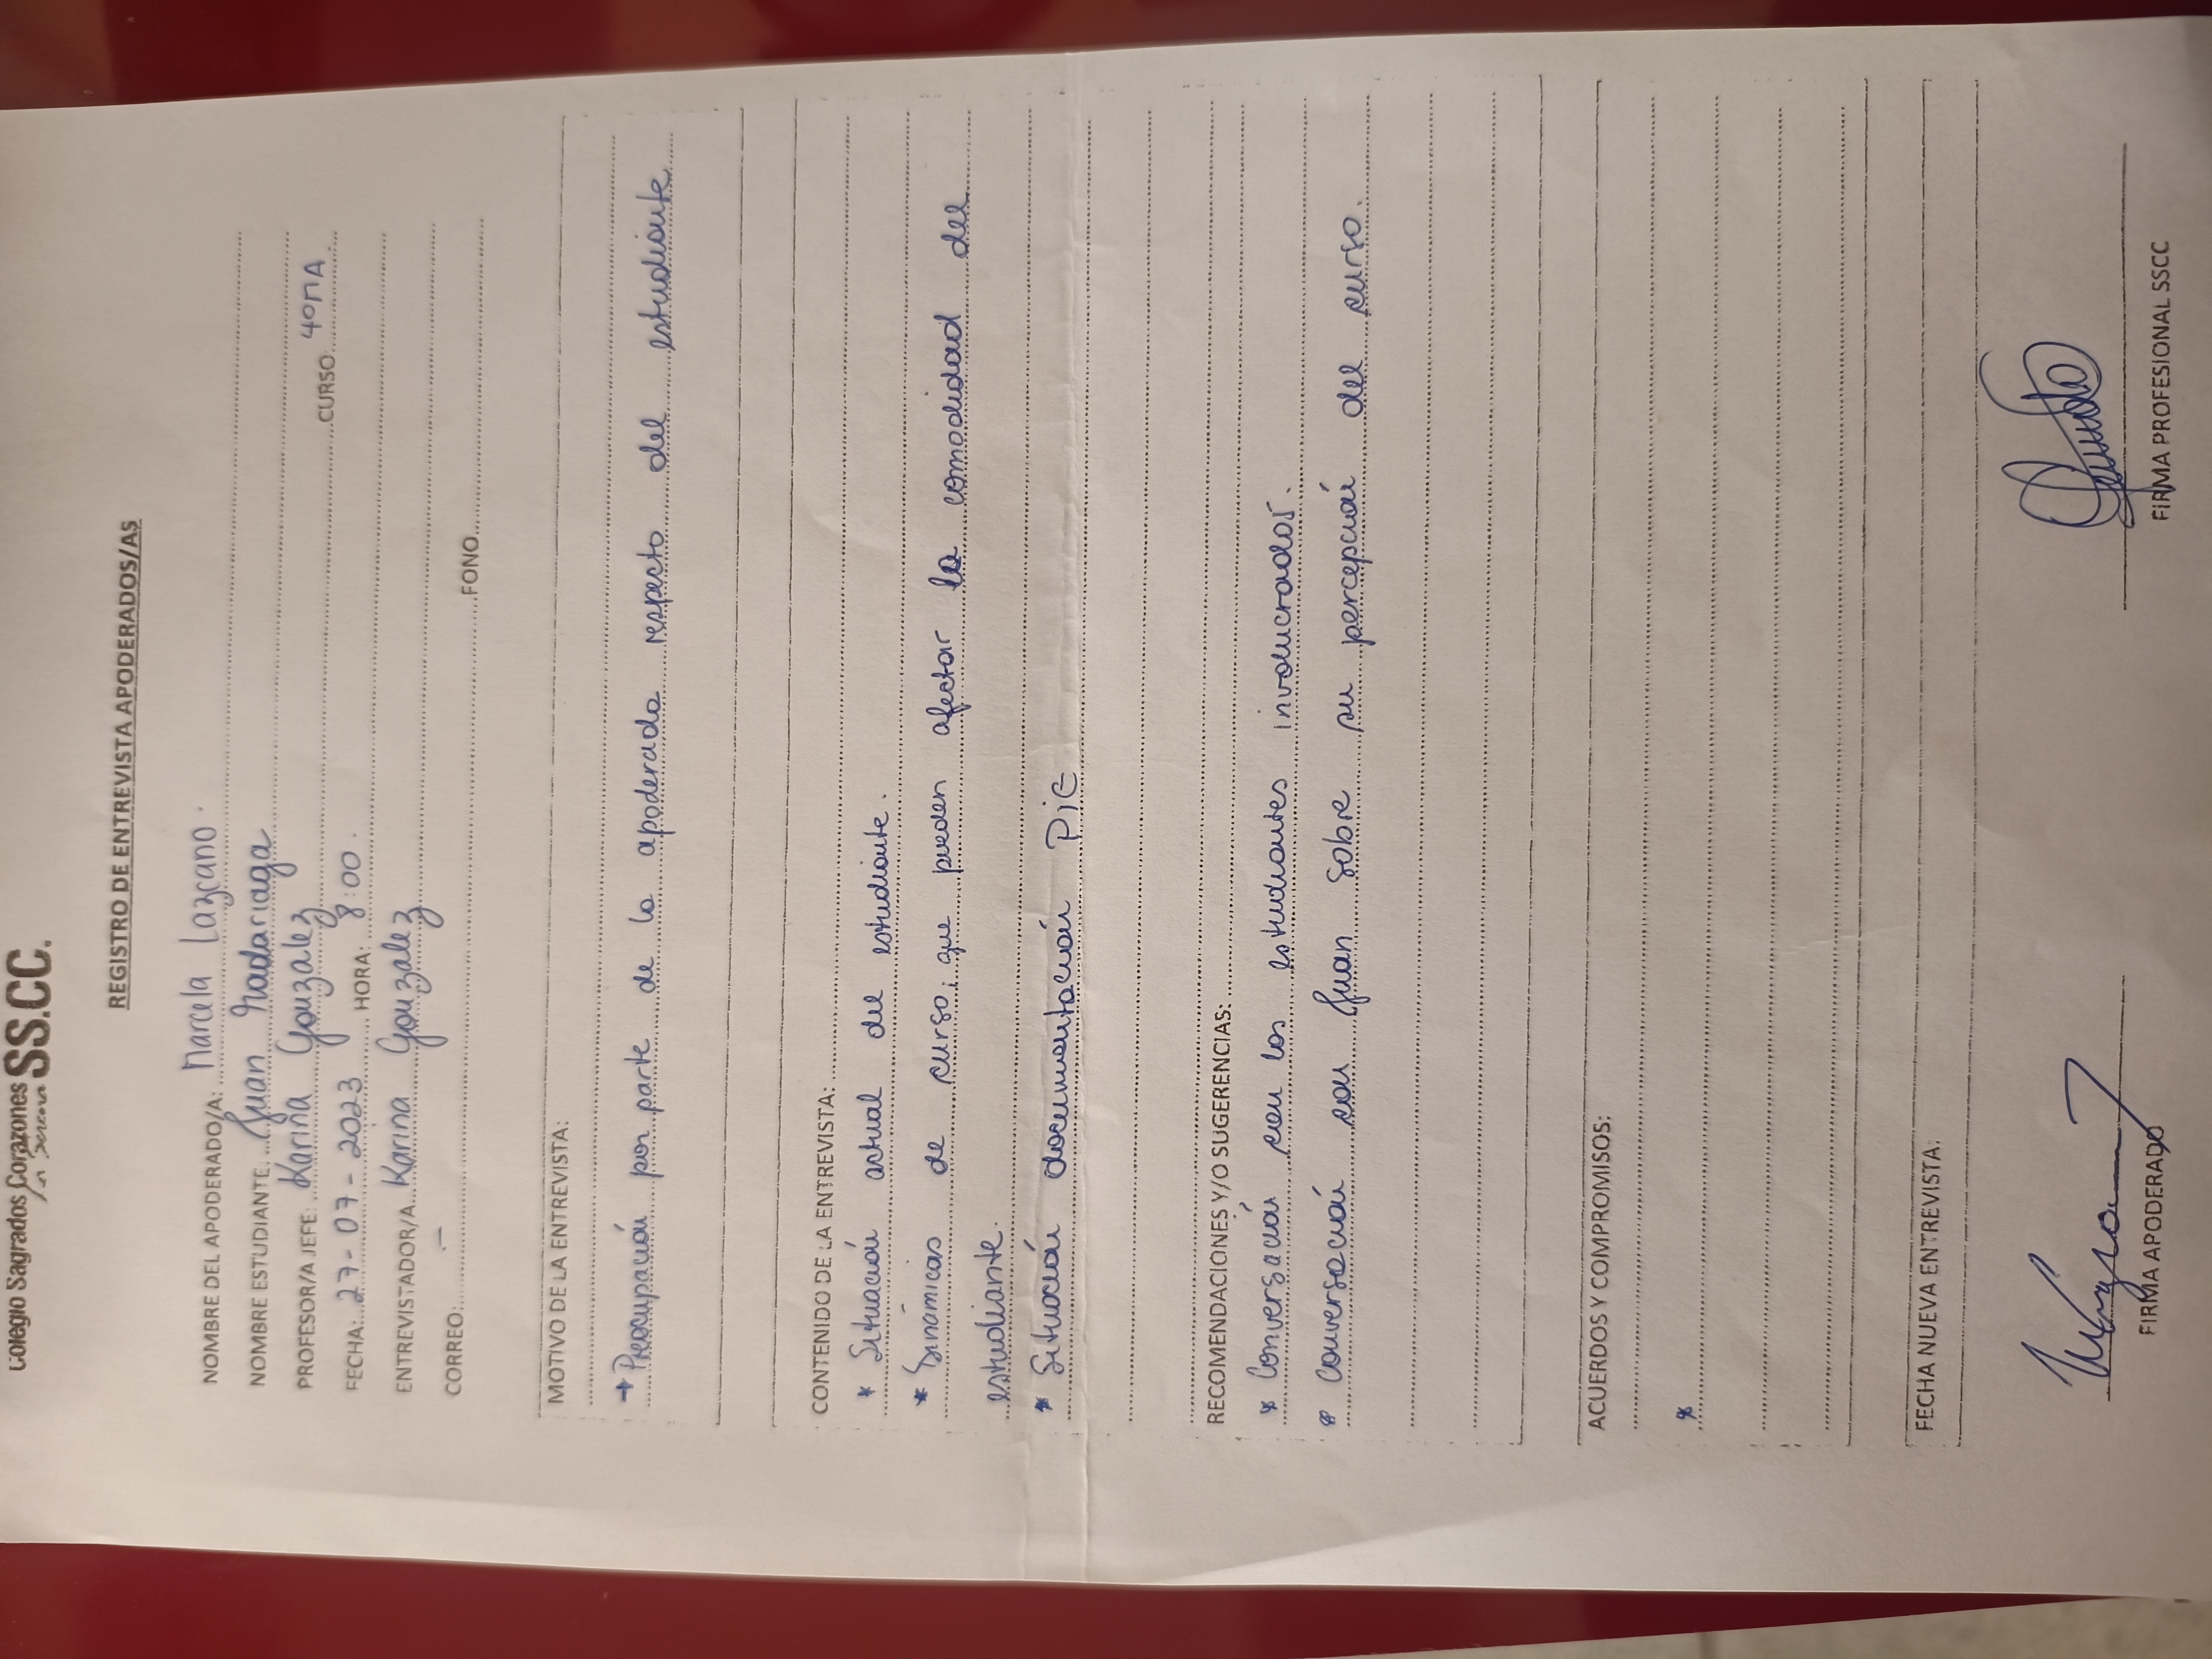 Colegio Sagrados Corazones SS.CC.
REGISTRO DE ENTREVISTA APODERADOS/AS
NOMBRE DEL APODERADO/A: Marcela Lazcano.
NOMBRE ESTUDIANTE: Juan Madariaga
PROFESOR/A JEFE: Karina Gonzalez CURSO: 4ºMA
FECHA: 27-07-2023 HORA: 8:00.
ENTREVISTADOR/A Karina Gonzalez
CORREO: — FONO
MOTIVO DE LA ENTREVISTA:
→ Preocupación por parte de la apoderada respecto del estudiante
CONTENIDO DE LA ENTREVISTA:
* Situación actual del estudiante.
* Dinámicas de curso, que pueden afectar la comodidad del
estudiante.
* Situación documentación PiE
RECOMENDACIONES Y/O SUGERENCIAS:
* Conversación con los estudiantes involucrados.
* conversación con Juan sobre su percepción del curso.
ACUERDOS Y COMPROMISOS:
*
FECHA NUEVA ENTREVISTA:
FIRMA APODERADO FIRMA PROFESIONAL SSCC